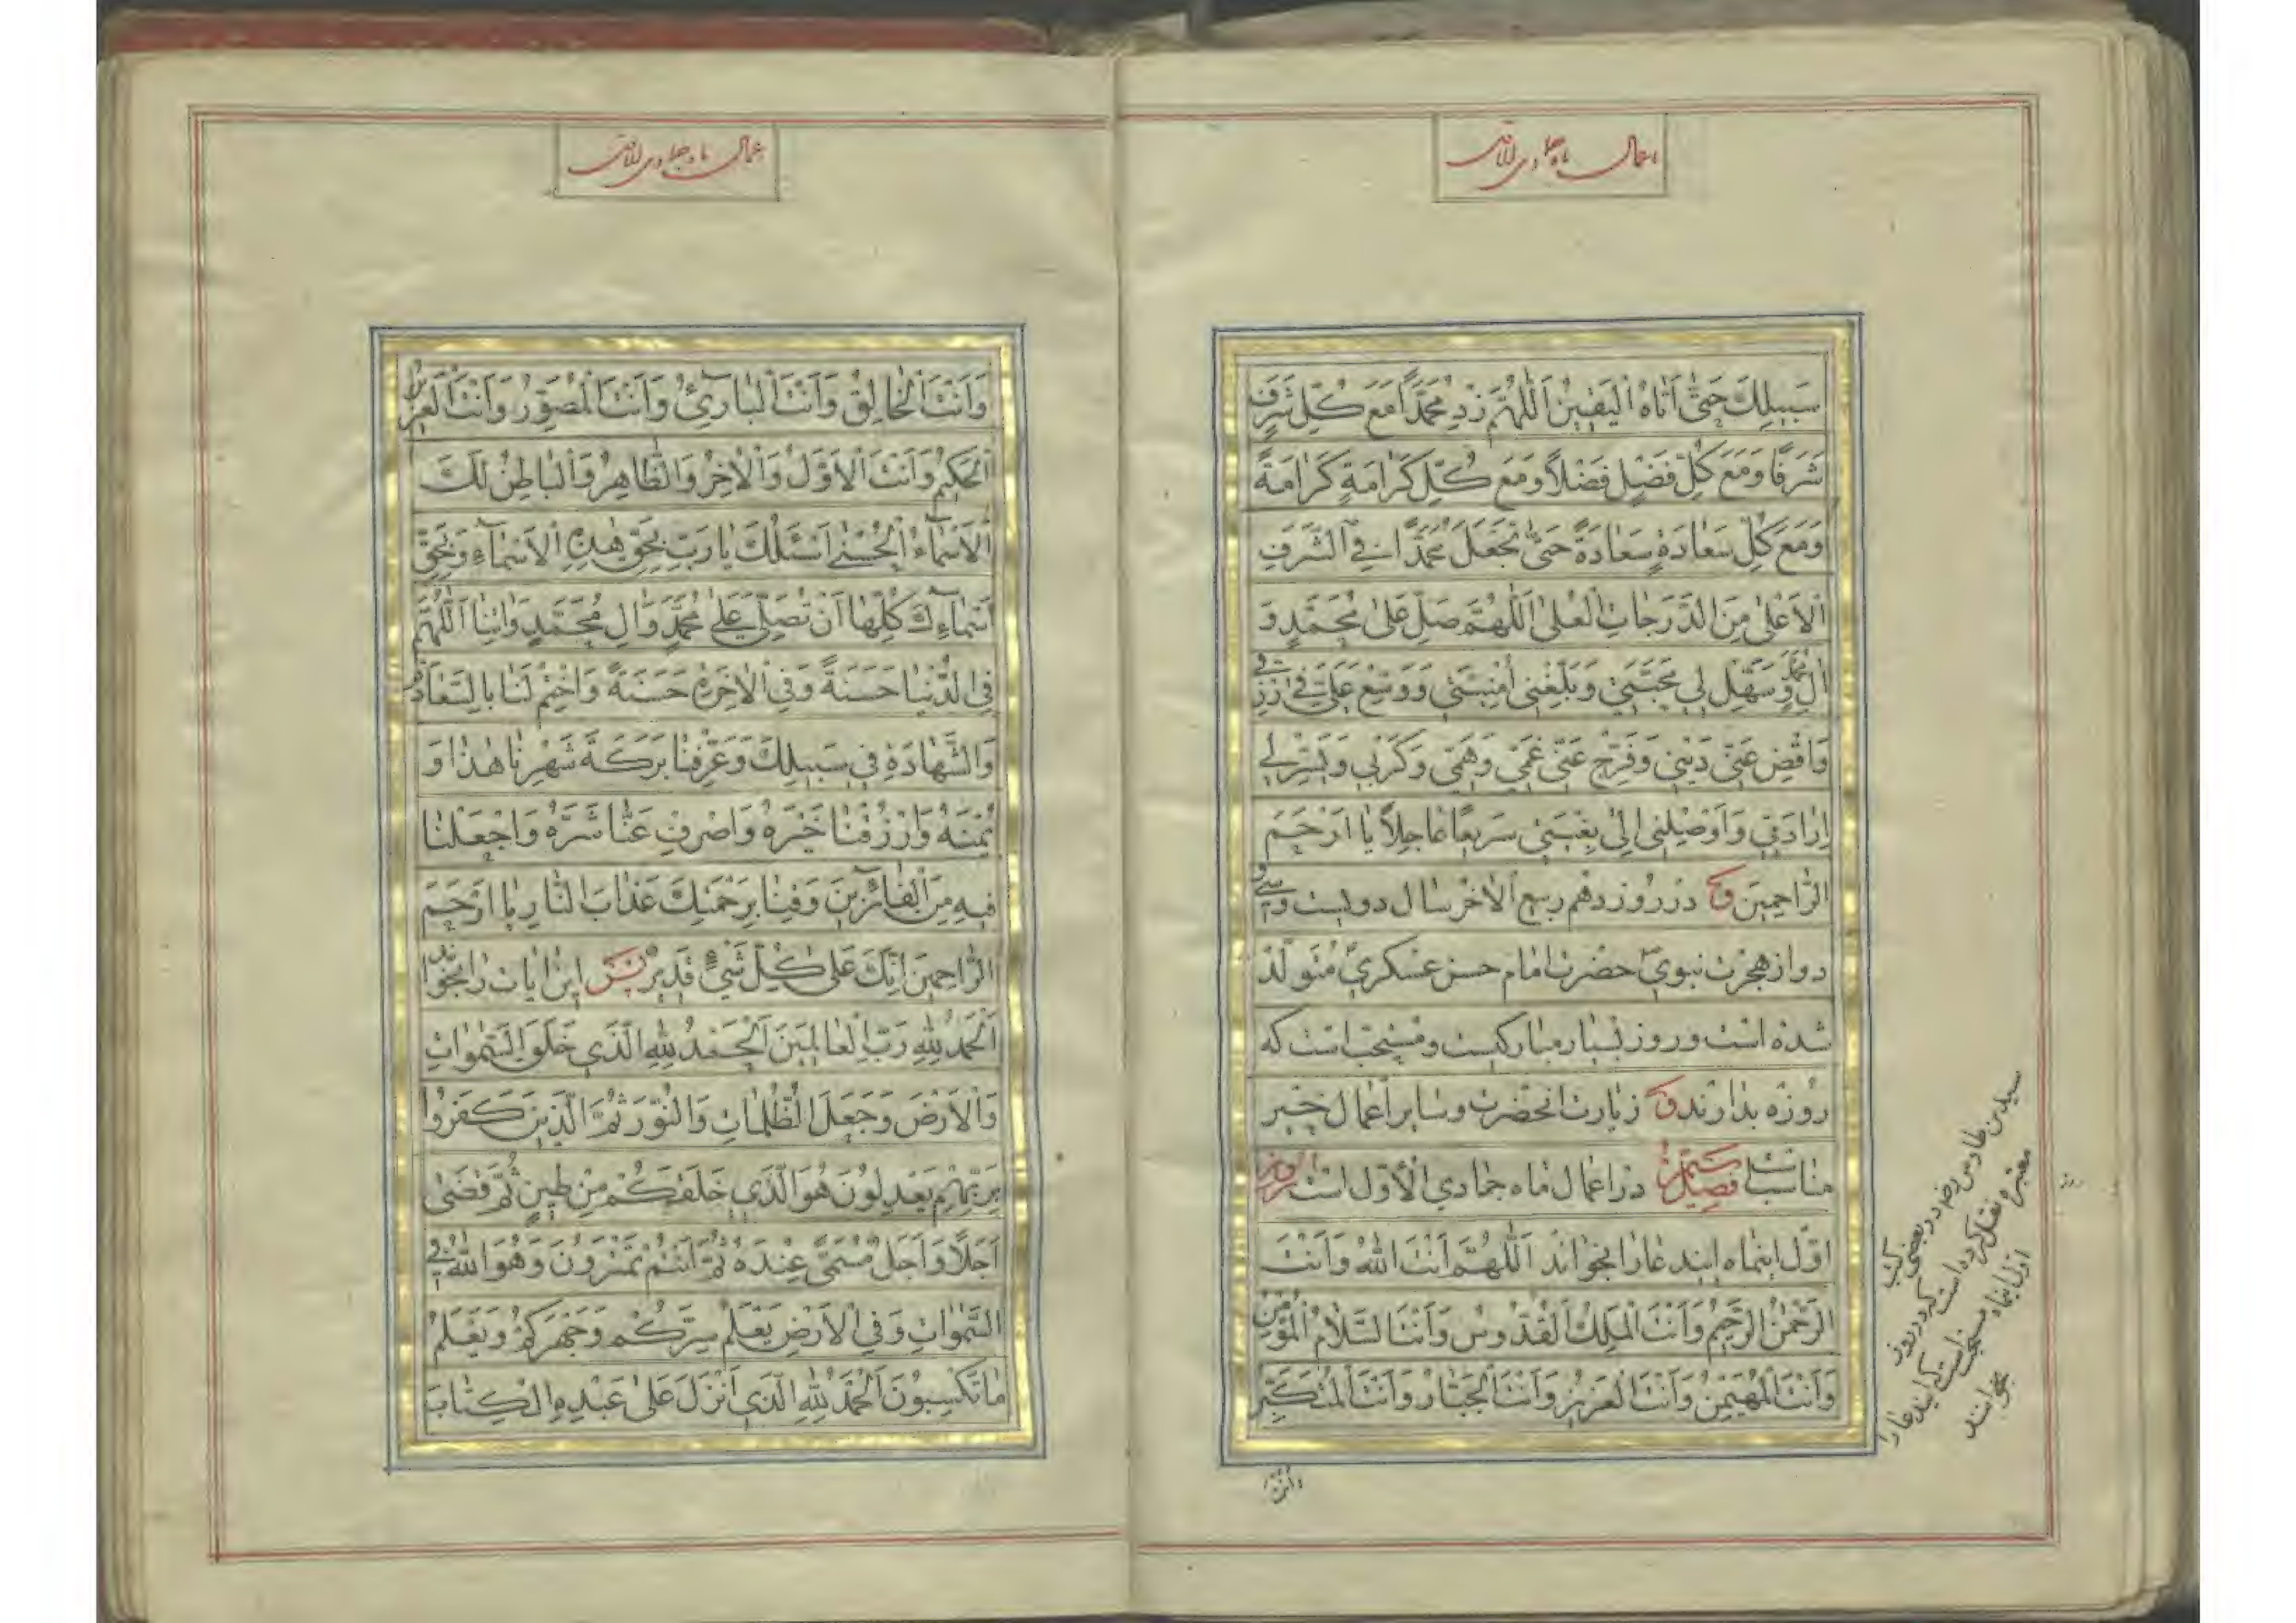 اعمال ماه جمادی الاول
سَبِيلِكَ حَتّىٰ اَتٰاهُ الْيَقِينُ اَللّٰهُمَّ زِدْ مُحَمَّدًا مَعَ كُلِّ شَرَفٍ
شَرَفًا وَمَعَ كُلِّ فَضْلٍ فَضْلاً وَمَعَ كُلِّ كَرٰامَةٍ كَرٰامَةً
وَمَعَ كُلِّ سَعٰادَةٍ سَعٰادَةً حَتّىٰ تَجْعَلَ مُحَمَّدًا فِي الشَّرَفِ
الْاَعْلىٰ مِنَ الدَّرَجٰاتِ الْعُلىٰ اَللّٰهُمَّ صَلِّ عَلىٰ مُحَمَّدٍ وَ
اٰلِ مُحَمَّدٍ وَسَهِّلْ لِي مَحَبَّتِي وَبَلِّغْنِي اُمْنِيَّتِي وَوَسِّعْ عَلَيَّ فِي رِزْقِي
وَاقْضِ عَنِّي دَيْنِي وَفَرِّجْ عَنِّي غَمِّي وَهَمِّي وَكَرْبِي وَيَسِّرْ لِي
اِرٰادَتِي وَاَوْصِلْنِي اِلىٰ بُغْيَتِي سَرِيعًا عٰاجِلاً يٰا اَرْحَمَ
الرّٰاحِمِينَ در روز دهم ربيع الاخر سال دويست وسى و
دو از هجرت نبوى حضرت امام حسن عسكرى متولد
شده است وروز بسيار مباركيست ومستحب است كه
روزه بدارند زيارت انحضرت وساير اعمال خير
مناسبست فصل در اعمال ماه جمادي الاول است
اوّل اينماه ايندعارا بخوانند اَللّٰهُمَّ اَنْتَ اللّٰهُ وَاَنْتَ
الرَّحْمٰنُ الرَّحِيمُ وَاَنْتَ الْمَلِكُ الْقُدُّوسُ وَاَنْتَ السَّلٰامُ الْمُؤْمِنُ
وَاَنْتَ الْمُهَيْمِنُ وَاَنْتَ الْعَزِيزُ وَاَنْتَ الْجَبّٰارُ وَاَنْتَ الْمُتَكَبِّرُ
وَاَنْتَ
سيد بن طاوس در بعضى كتب
معتبره نقل كرده است كه در روز
اول اينماه مستحب است كه ايندعارا
بخوانند
اعمال ماه جمادی الاول
وَاَنْتَ الْخٰالِقُ وَاَنْتَ الْبٰارِئُ وَاَنْتَ الْمُصَوِّرُ وَاَنْتَ الْعَزِيزُ
الْحَكِيمُ وَاَنْتَ الْاَوَّلُ وَالْاٰخِرُ وَالظّٰاهِرُ وَالْبٰاطِنُ لَكَ
الْاَسْمٰاءُ الْحُسْنىٰ اَسْئَلُكَ يٰا رَبِّ بِحَقِّ هٰذِهِ الْاَسْمٰاءِ وَبِحَقِّ
اَسْمٰاءِكَ كُلِّهٰا اَنْ تُصَلِّيَ عَلىٰ مُحَمَّدٍ وَاٰلِ مُحَمَّدٍ وَاٰتِنٰا اَللّٰهُمَّ
فِي الدُّنْيٰا حَسَنَةً وَفِي الْاٰخِرَةِ حَسَنَةً وَاخْتِمْ لَنٰا بِالسَّعٰادَةِ
وَالشَّهٰادَةِ فِي سَبِيلِكَ وَعَرِّفْنٰا بَرَكَةَ شَهْرِنٰا هٰذٰا وَ
يُمْنَهُ وَارْزُقْنٰا خَيْرَهُ وَاصْرِفْ عَنّٰا شَرَّهُ وَاجْعَلْنٰا
فِيهِ مِنَ الْفٰائِزِينَ وَقِنٰا بِرَحْمَتِكَ عَذٰابَ النّٰارِ يٰا اَرْحَمَ
الرّٰاحِمِينَ اِنَّكَ عَلىٰ كُلِّ شَيْءٍ قَدِيرٌ پس اين ايات را بخواند
اَلْحَمْدُ لِلّٰهِ رَبِّ الْعٰالَمِينَ اَلْحَمْدُ لِلّٰهِ الَّذِي خَلَقَ السَّمٰوٰاتِ
وَالْاَرْضَ وَجَعَلَ الظُّلُمٰاتِ وَالنُّورَ ثُمَّ الَّذِينَ كَفَرُوا
بِرَبِّهِمْ يَعْدِلُونَ هُوَ الَّذِي خَلَقَكُمْ مِنْ طِينٍ ثُمَّ قَضىٰ
اَجَلاً وَاَجَلٌ مُسَمًّى عِنْدَهُ ثُمَّ اَنْتُمْ تَمْتَرُونَ وَهُوَ اللّٰهُ فِي
السَّمٰوٰاتِ وَفِي الْاَرْضِ يَعْلَمُ سِرَّكُمْ وَجَهْرَكُمْ وَيَعْلَمُ
مٰا تَكْسِبُونَ اَلْحَمْدُ لِلّٰهِ الَّذِي اَنْزَلَ عَلىٰ عَبْدِهِ الْكِتٰابَ